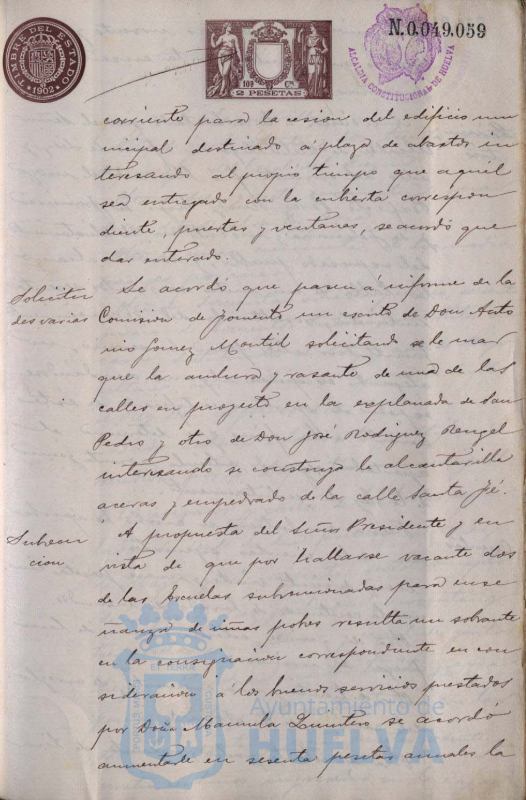 TIMBRE DEL ESTADO
1902
10ª Cªˢ
2 PESETAS
ALCALDIA CONSTITUCIONAL DE HUELVA
N.0.049.059
corriente para la cesion del edificio mu
nicipal destinado á plaza de abastos in
teresando al propio tiempo que aquél
sea entregado con la cubierta correspon
diente, puertas y ventanas, se acordó que
dar enterado.
Solicitu
des varias
Se acordó que pasen á informe de la
Comision de fomento un escrito de Don Anto
nio Gomez Montiel solicitando se le mar
que la anchura y rasante de una de las
calles en proyecto en la explanada de San
Pedro y otro de Don José Rodriguez Rengel
interesando se construya la alcantarilla
aceras y empedrado de la calle Santa Fé.
Subven
cion
A propuesta del Señor Presidente y en
vista de que por hallarse vacante dos
de las Escuelas subvencionadas para ense
ñanza de niñas pobres resulta un sobrante
en la consignacion correspondiente en con
sideracion á los buenos servicios prestados
por Doña Manuela Quintero se acordó
aumentarle en sesenta pesetas anuales la
Ayuntamiento de
HUELVA